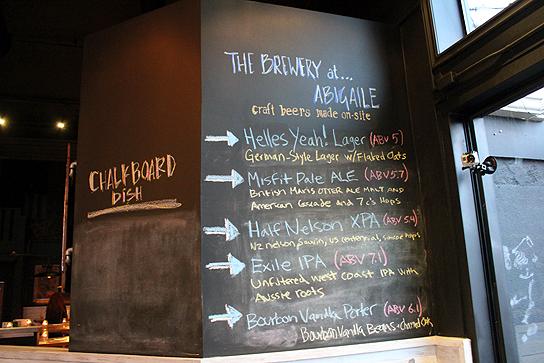 CHALKBOARD
DISH
THE BREWERY at...
ABIGAILE
craft beers made on-site
Helles Yeah! Lager (ABV 5)
German-Style Lager w/Flaked Oats
Misfit Pale ALE (ABV 5.7)
British Maris OTTER ALE MALT AND
American Cascade and 7 c's Hops
Half Nelson XPA (ABV 5.4)
NZ nelson, Sauvin, US centennial, simcoe hops
Exile IPA (ABV 7.1)
Unfiltered west coast IPA with
Aussie roots
Bourbon Vanilla Porter (ABV 6.1)
Bourbon Vanilla Beans + Charred Oak